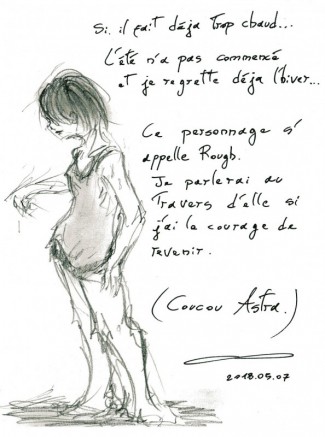 Si, il fait déja trop chaud...
L'été n'a pas commencé
et je regrette déja l'hiver...
Ce personnage s'
appelle Rough.
Je parlerai au
travers d'elle si
j'ai le courage de
revenir.
(Coucou Astra.)
2018.05.07